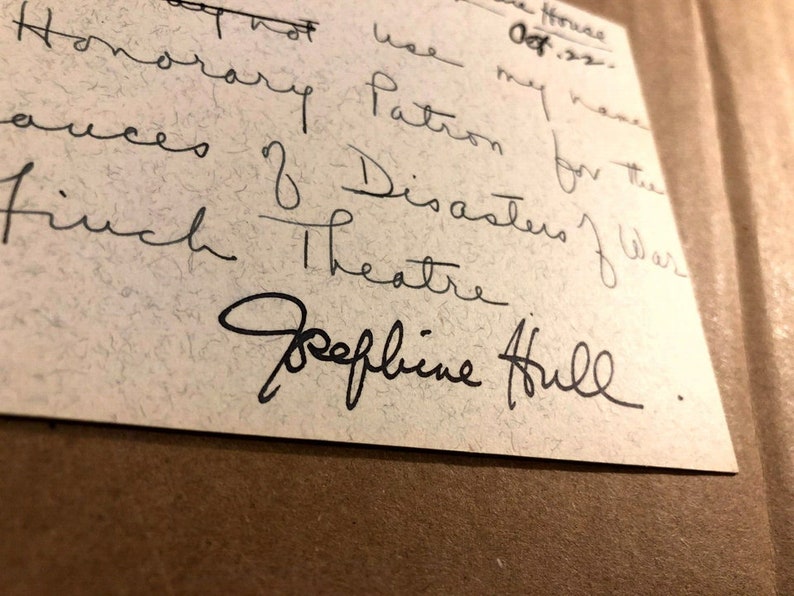 House
Oct. 22.
not use my name
Honorary Patron for the
of Disasters of War
Finch Theatre
Josephine Hull.